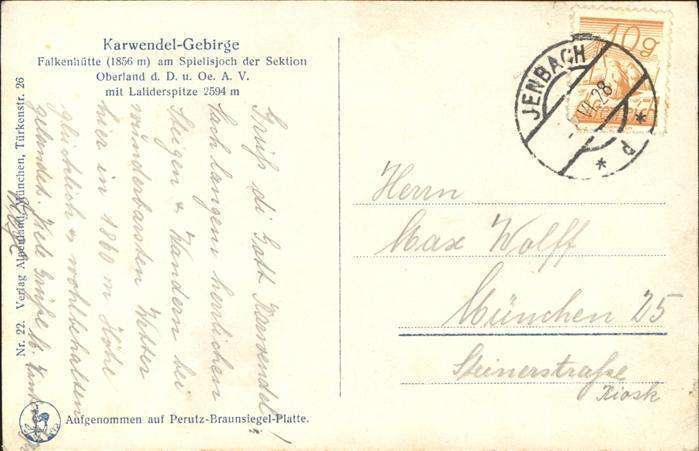 Karwendel-Gebirge
Falkenhütte (1856 m) am Spielisjoch der Sektion
Oberland d. D. u. Oe. A. V.
mit Laliderspitze 2594 m
Nr. 22. Verlag Alpenland, München, Türkenstr. 26
Grüß di Gott Karwendel!
Nach langem herrlichen
Steigen & Wandern bei
wunderbarsten Wetter
hier in 1860 m Höhe
glücklich & wohlbehalten
gelandet. Viele Grüße
Aufgenommen auf Perutz-Braunsiegel-Platte.
10g
JENBACH
28
Herrn
Max Wolff
München 25
Steinerstraße
Kiosk